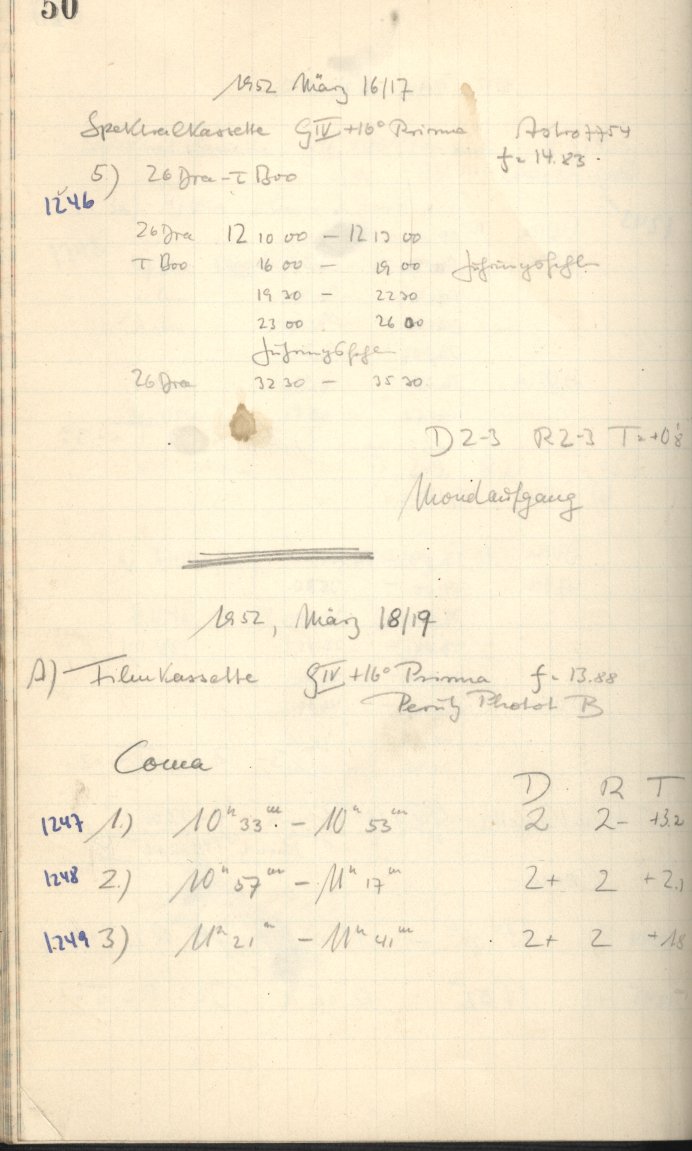 50
1952 März 16/17
Spektralkassette GIV +16° Prisma Astro 7754
f = 14.83.
5.) 26 Dra - τ Boo
1246
26 Dra 12 10 00 - 12 13 00
τ Boo 16 00 - 19 00 Führungsfehler
19 30 - 22 30
23 00 26 00
Führungsfehler
26 Dra 32 30 - 35 30
D 2-3 R 2-3 T = +0.8
Mondaufgang
1952, März 18/19
A) Filmkassette GIV +16° Prisma f = 13.88
Perutz Photot B
Coma
D R T
1247 1.) 10h 33m. - 10h 53m 2 2- +3.2
1248 2.) 10h 57m - 11h 17m 2+ 2 +2.1
1249 3) 11h 21m - 11h 41m 2+ 2 +1.8